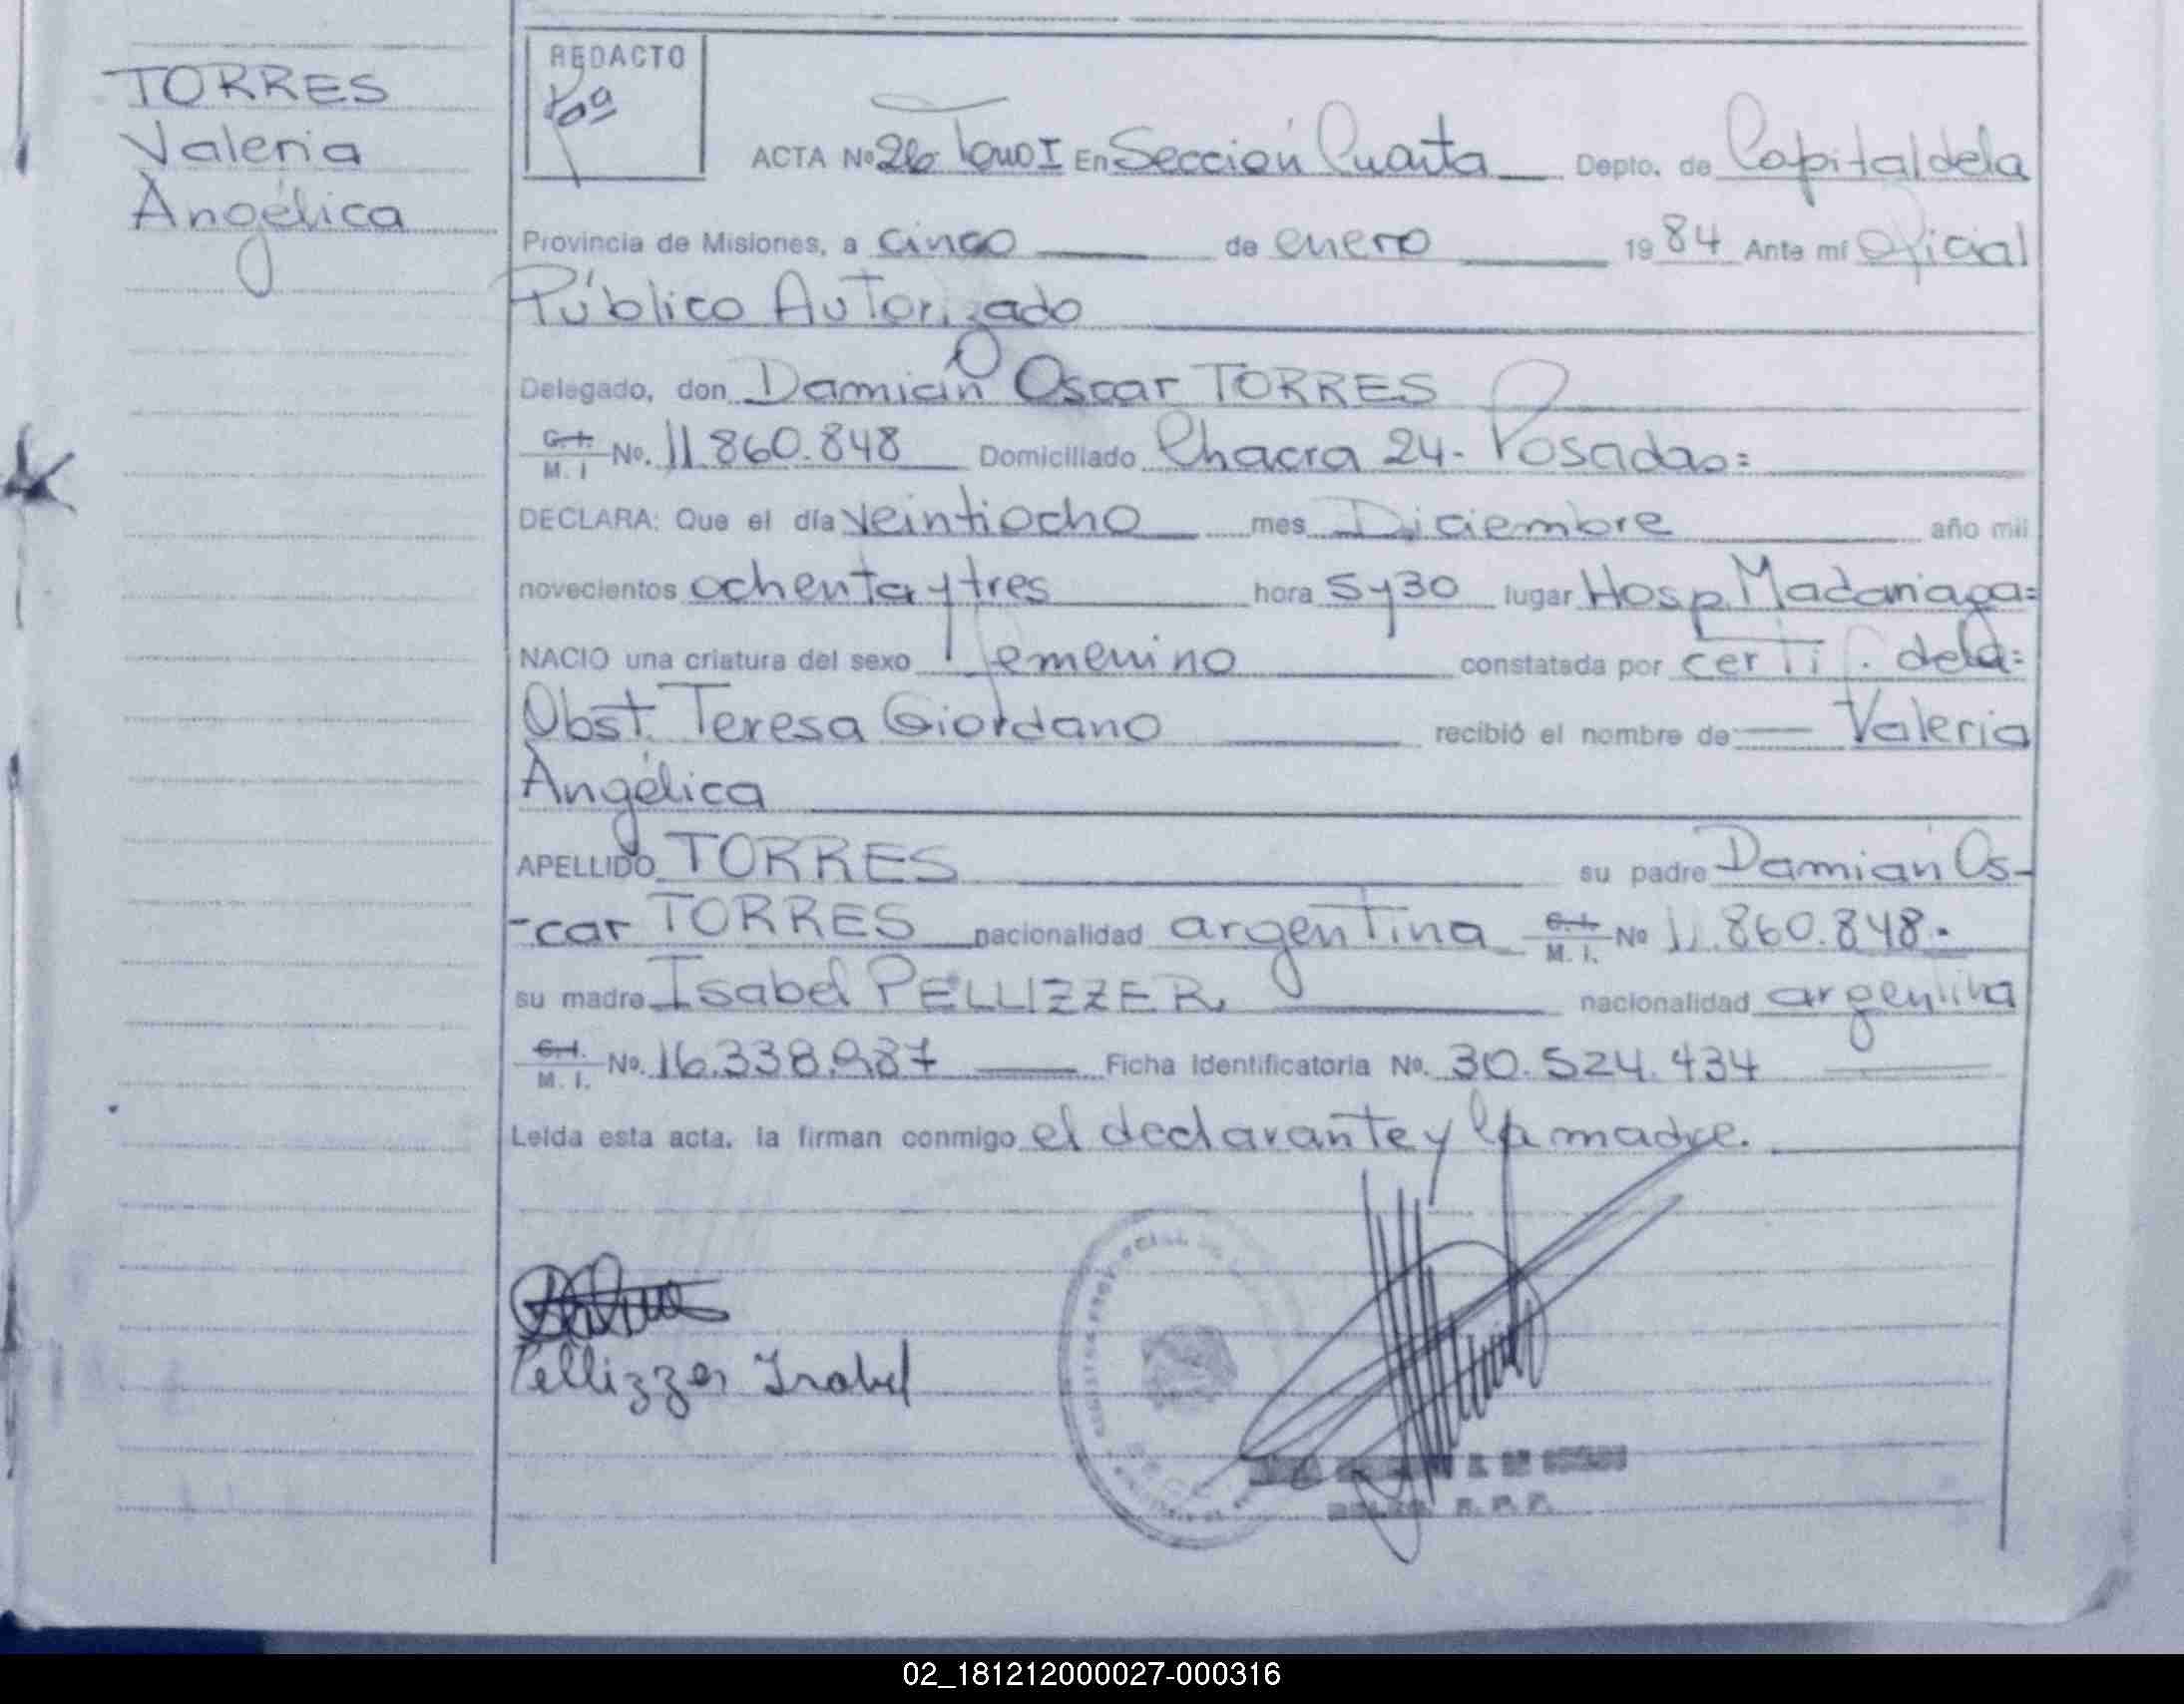 TORRES
Valeria
Angélica
REDACTO
ACTA Nº 26 Tomo I En Sección Cuarta Depto. de Capital de la
Provincia de Misiones, a cinco de enero 1984 Ante mí Oficial
Público Autorizado
Delegado, don Damián Oscar TORRES
C. I. M. I Nº. 11.860.848 Domiciliado Chacra 24- Posadas=
DECLARA: Que el día veintiocho mes Diciembre año mil
novecientos ochenta y tres hora 5 y 30 lugar Hosp. Madariaga=
NACIO una criatura del sexo femenino constatada por certif. de la=
Obst. Teresa Giordano recibió el nombre de Valeria
Angélica
APELLIDO TORRES su padre Damián Os-
-car TORRES nacionalidad argentina C. I. M. I. Nº 11.860.848.
su madre Isabel PELLIZZER nacionalidad argentina
C. I. M. I. Nº. 16.338.987 Ficha Identificatoria Nº. 30.524.434
Leída esta acta, la firman conmigo el declarante y la madre.
Pellizzer Isabel
02_181212000027-000316